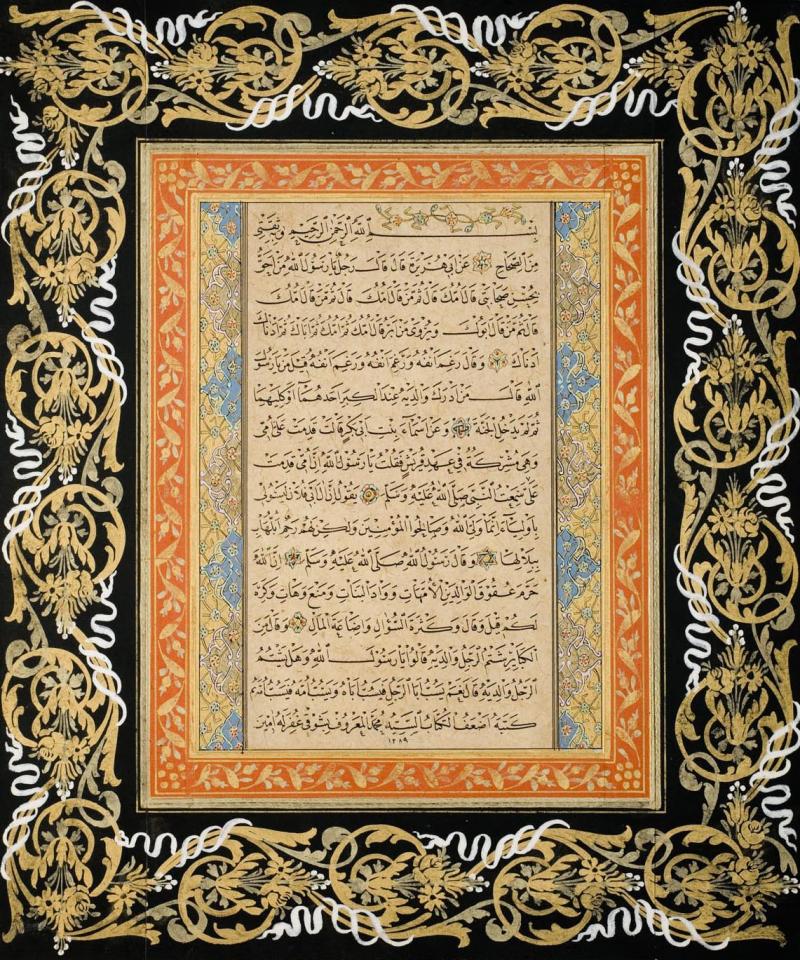 بسم الله الرحمن الرحيم وبه ثقتي
من الصحاح عن ابي هريرة قال قال رجل يا رسول الله من احق
بحسن صحابتي قال امك قال ثم من قال امك قال ثم من قال امك
قال ثم من قال ابوك ويروى من ابر قال امك ثم امك ثم اباك ثم ادناك
ادناك وقال رغم انفه ورغم انفه ورغم انفه قيل من يا رسول
الله قال من ادرك والديه عند الكبر احدهما او كليهما
ثم لم يدخل الجنة وعن اسماء بنت ابي بكر قالت قدمت علي امي
وهي مشركة في عهد قريش فقلت يا رسول الله ان امي قدمت
علي سمعت النبي صلى الله عليه وسلم يقول ان آل ابي فلان ليسوا لي
باولياء انما وليي الله وصالحوا المؤمنين ولكن لهم رحم ابلها
ببلالها وقال رسول الله صلى الله عليه وسلم ان الله
حرم عقوق الوالدين الامهات ووأد البنات ومنع وهات وكره
لكم قيل وقال وكثرة السؤال واضاعة المال وقال من
الكبائر شتم الرجل والديه قالوا يا رسول الله وهل يشتم
الرجل والديه قال نعم يسب ابا الرجل فيسب اباه ويسب امه فيسب امه
كتبه اضعف الكتاب السيد محمد المعروف بشوقي غفر له آمين
١٢٨٩